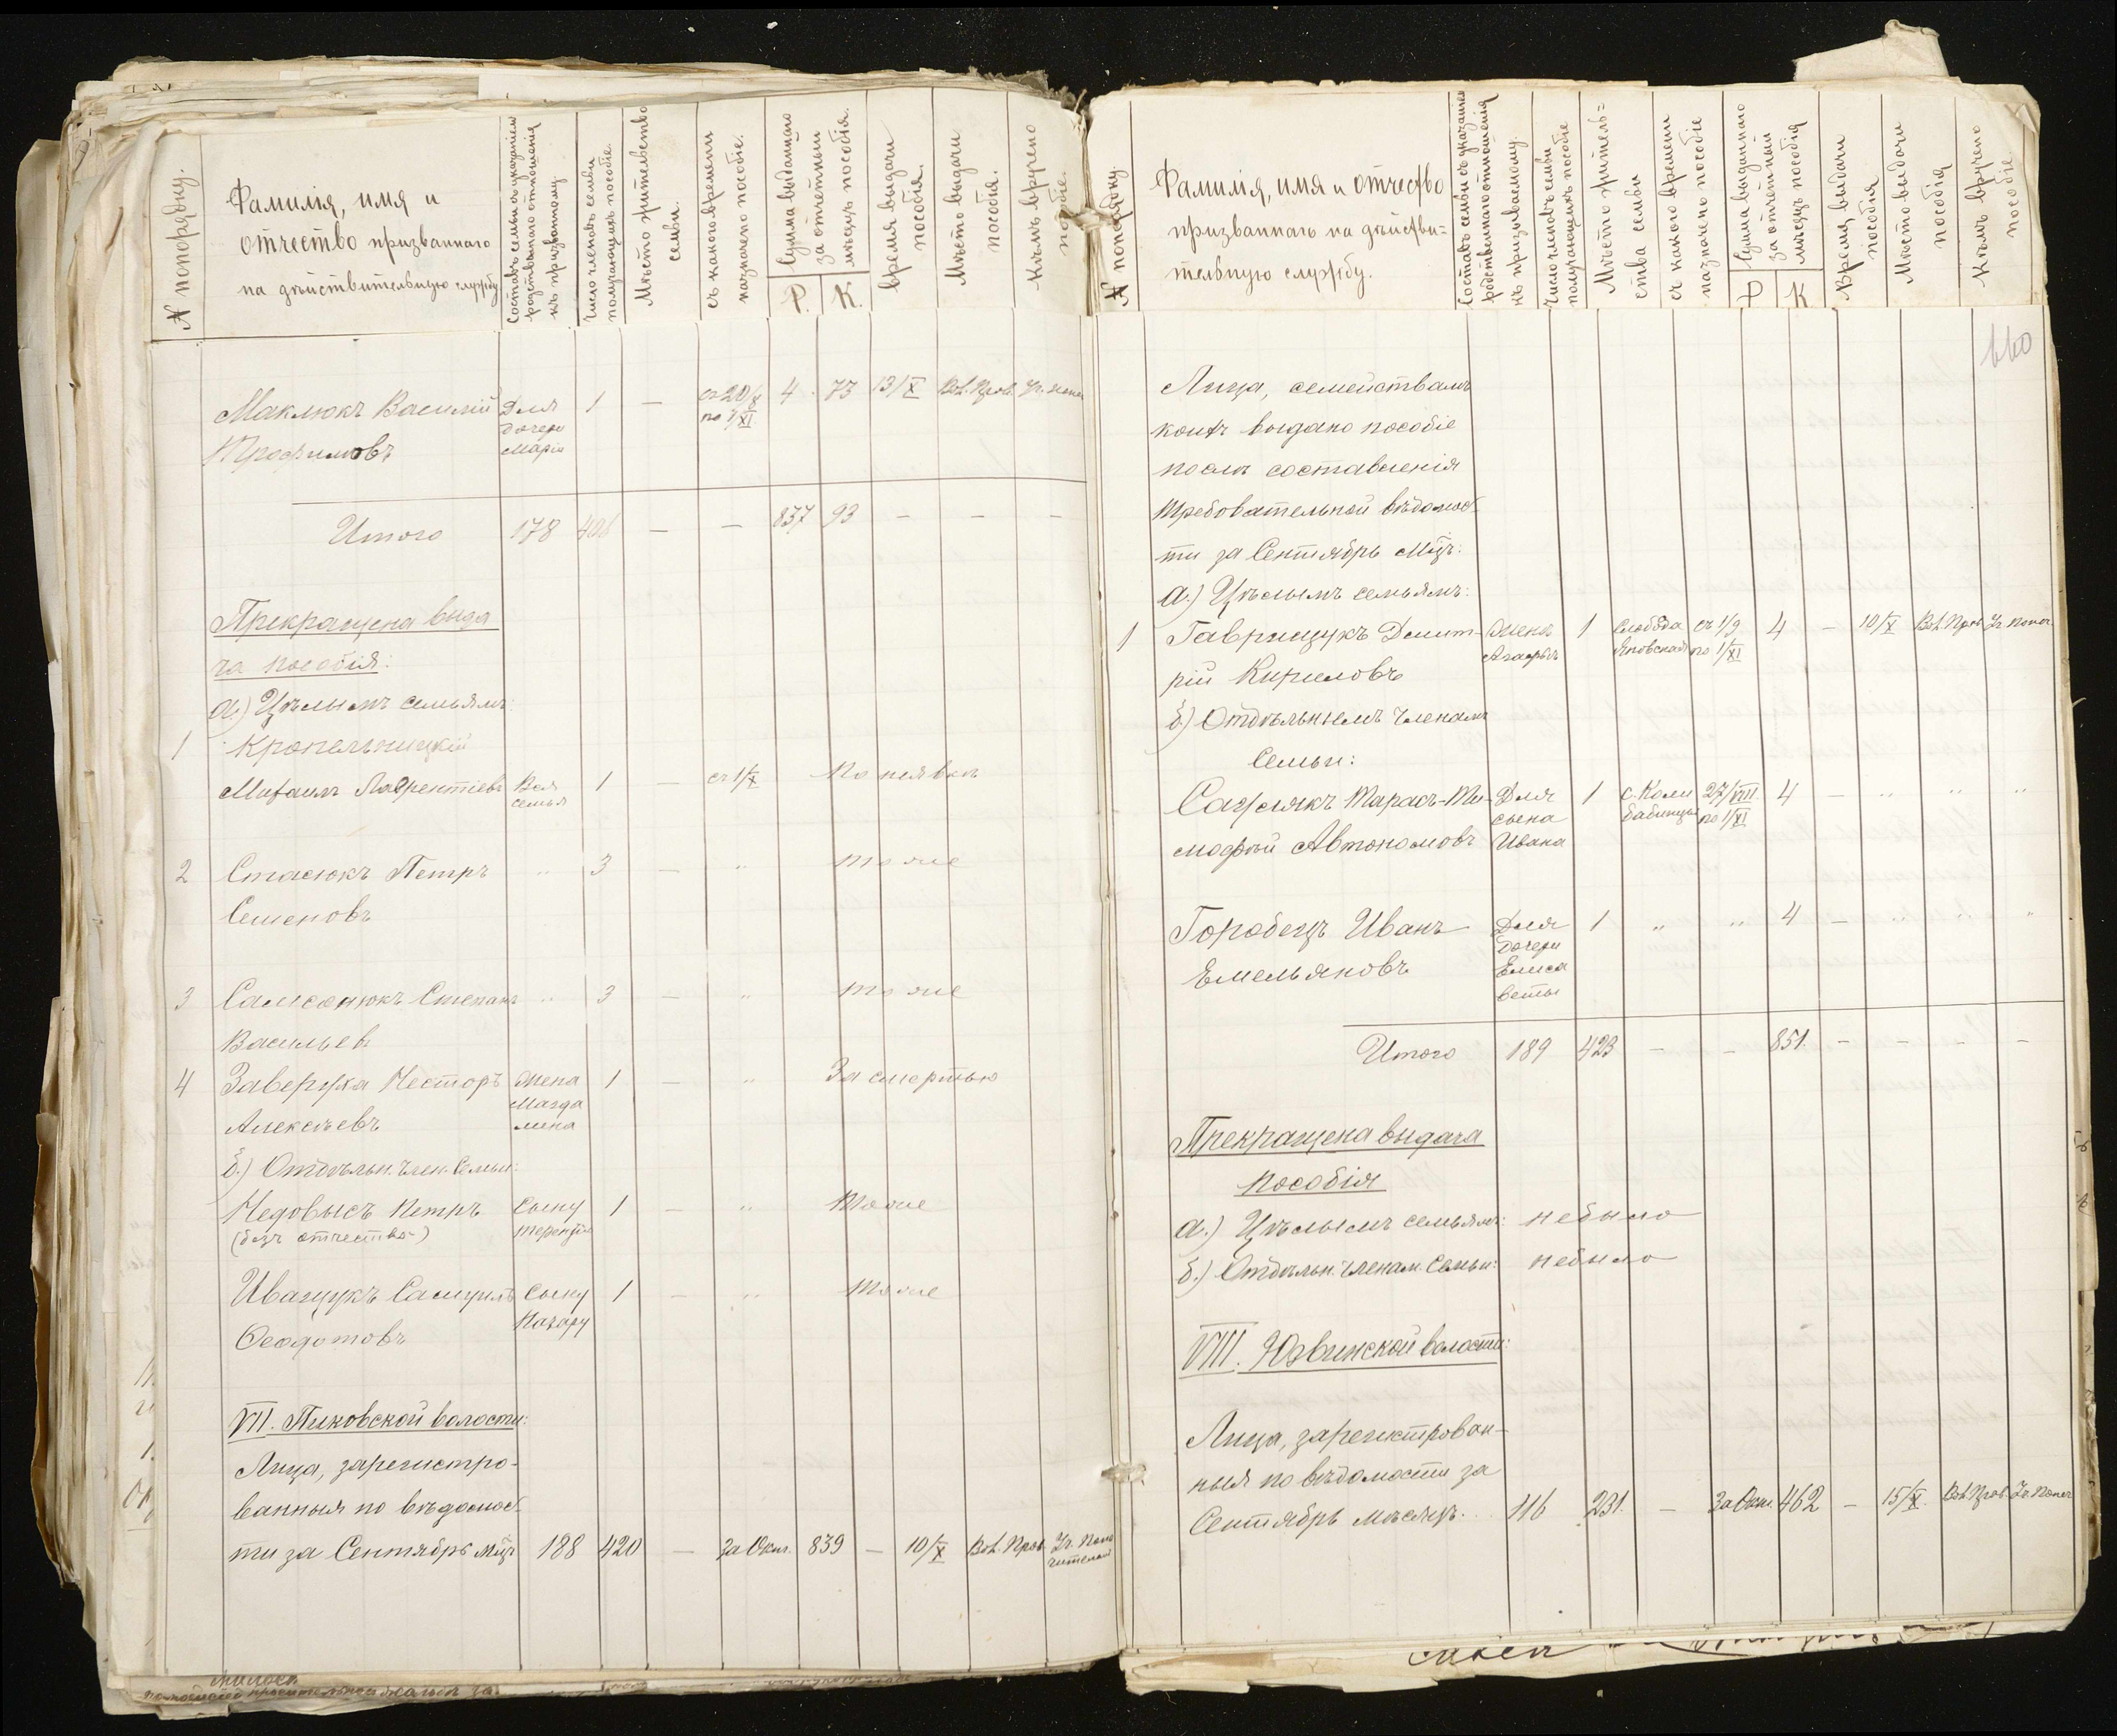 № попорядку.
Фамилія, имя и
отчество призваннаго
на дѣйствительную службу
Составъ семьи съ указаніем
родственнаго отношенія
къ призванному.
Число членовъ семьи
получающихъ пособіе.
Мѣсто жительства
семьи.
съ какого времени
назначено пособіе.
Сумма выданнаго
за отчетный
мѣсяцъ пособія.
Р. К.
время выдачи
пособія.
Мѣсто выдачи
пособія.
Кѣмъ вручено
пособіе.
Маклюкъ Василій Для 1 — съ 20/8 4 73 13/X Вол. Прав. Уч. попеч
Трофимовъ дочери Маріи по 1/XI
Итого 178 406 — — 837 93 — — —
Прекращена выда
ча пособія:
а.) Цѣлымъ семьямъ:
1 Кропельницкій
Михаилъ Лаврентіевъ Вся семья 1 — съ 1/X По неявкѣ
2 Стасюкъ Петръ " 3 — " тоже
Семеновъ
3 Самсонюкъ Степанъ " 3 — " тоже
Васильев
4 Заверуха Несторъ Жена 1 — " За смертью
Алексѣевъ Магда
лина
б.) Отдѣльн. член. Семьи:
Недовысъ Петръ Сыну 1 — " тоже
(безъ отчества) Терентію
Иващукъ Самуилъ Сыну 1 — " тоже
Ѳеодотовъ Назару
VII. Пиковской волости:
Лица, зарегистро-
ванныя по вѣдомос-
ти за Сентябрь м-цъ 188 420 — За Окт. 839 — 10/X Вол. Прав. Уч. Попе
чителемъ
№ попорядку
Фамилія, имя и отчество
призваннаго на дѣйстви=
тельную службу.
Составъ семьи съ указаніем
родственнаго отношенія
къ призываемому.
Число членовъ семьи
получающихъ пособіе
Мѣсто житель=
ства семьи
съ какого времени
назначено пособіе
Сумма выданнаго
за отчетный
мѣсяцъ пособія
Р К
Время выдачи
пособія
Мѣсто выдачи
пособія
Кѣмъ вручено
пособіе
660
Лица, семействамъ
коихъ выдано пособіе
послѣ составленія
Требовательной вѣдомос-
ти за Сентябрь м-цъ:
а.) Цѣлымъ семьямъ:
1 Гаврищукъ Димит- Женѣ 1 Слобода съ 1/9 4 — 10/X Вол. Прав Уч. попеч.
рій Кириловъ Агафьѣ Яновская по 1/XI
б.) Отдѣльнымъ членамъ
Семьи:
Сажнякъ Тарасъ-Ти- Для 1 с. Коли 27/VIII 4 — " " "
мофѣй Автономовъ сына Ивана бабинцы по 1/XI
Горобецъ Иванъ Для 1 " " 4 — " " "
Емельяновъ дочери
Елиса
веты
Итого 189 423 — — 851. — — — —
Прекращена выдача
пособія
а.) Цѣлымъ семьямъ: небыло
б.) Отдѣльн. членам. Семьи: небыло
VIII. Юзвинской волости:
Лица, зарегистрован-
ныя по вѣдомости за
Сентябрь мѣсяцъ. 116 231. — За Окт. 462 — 15/X. Вол. Прав. Уч. Попеч